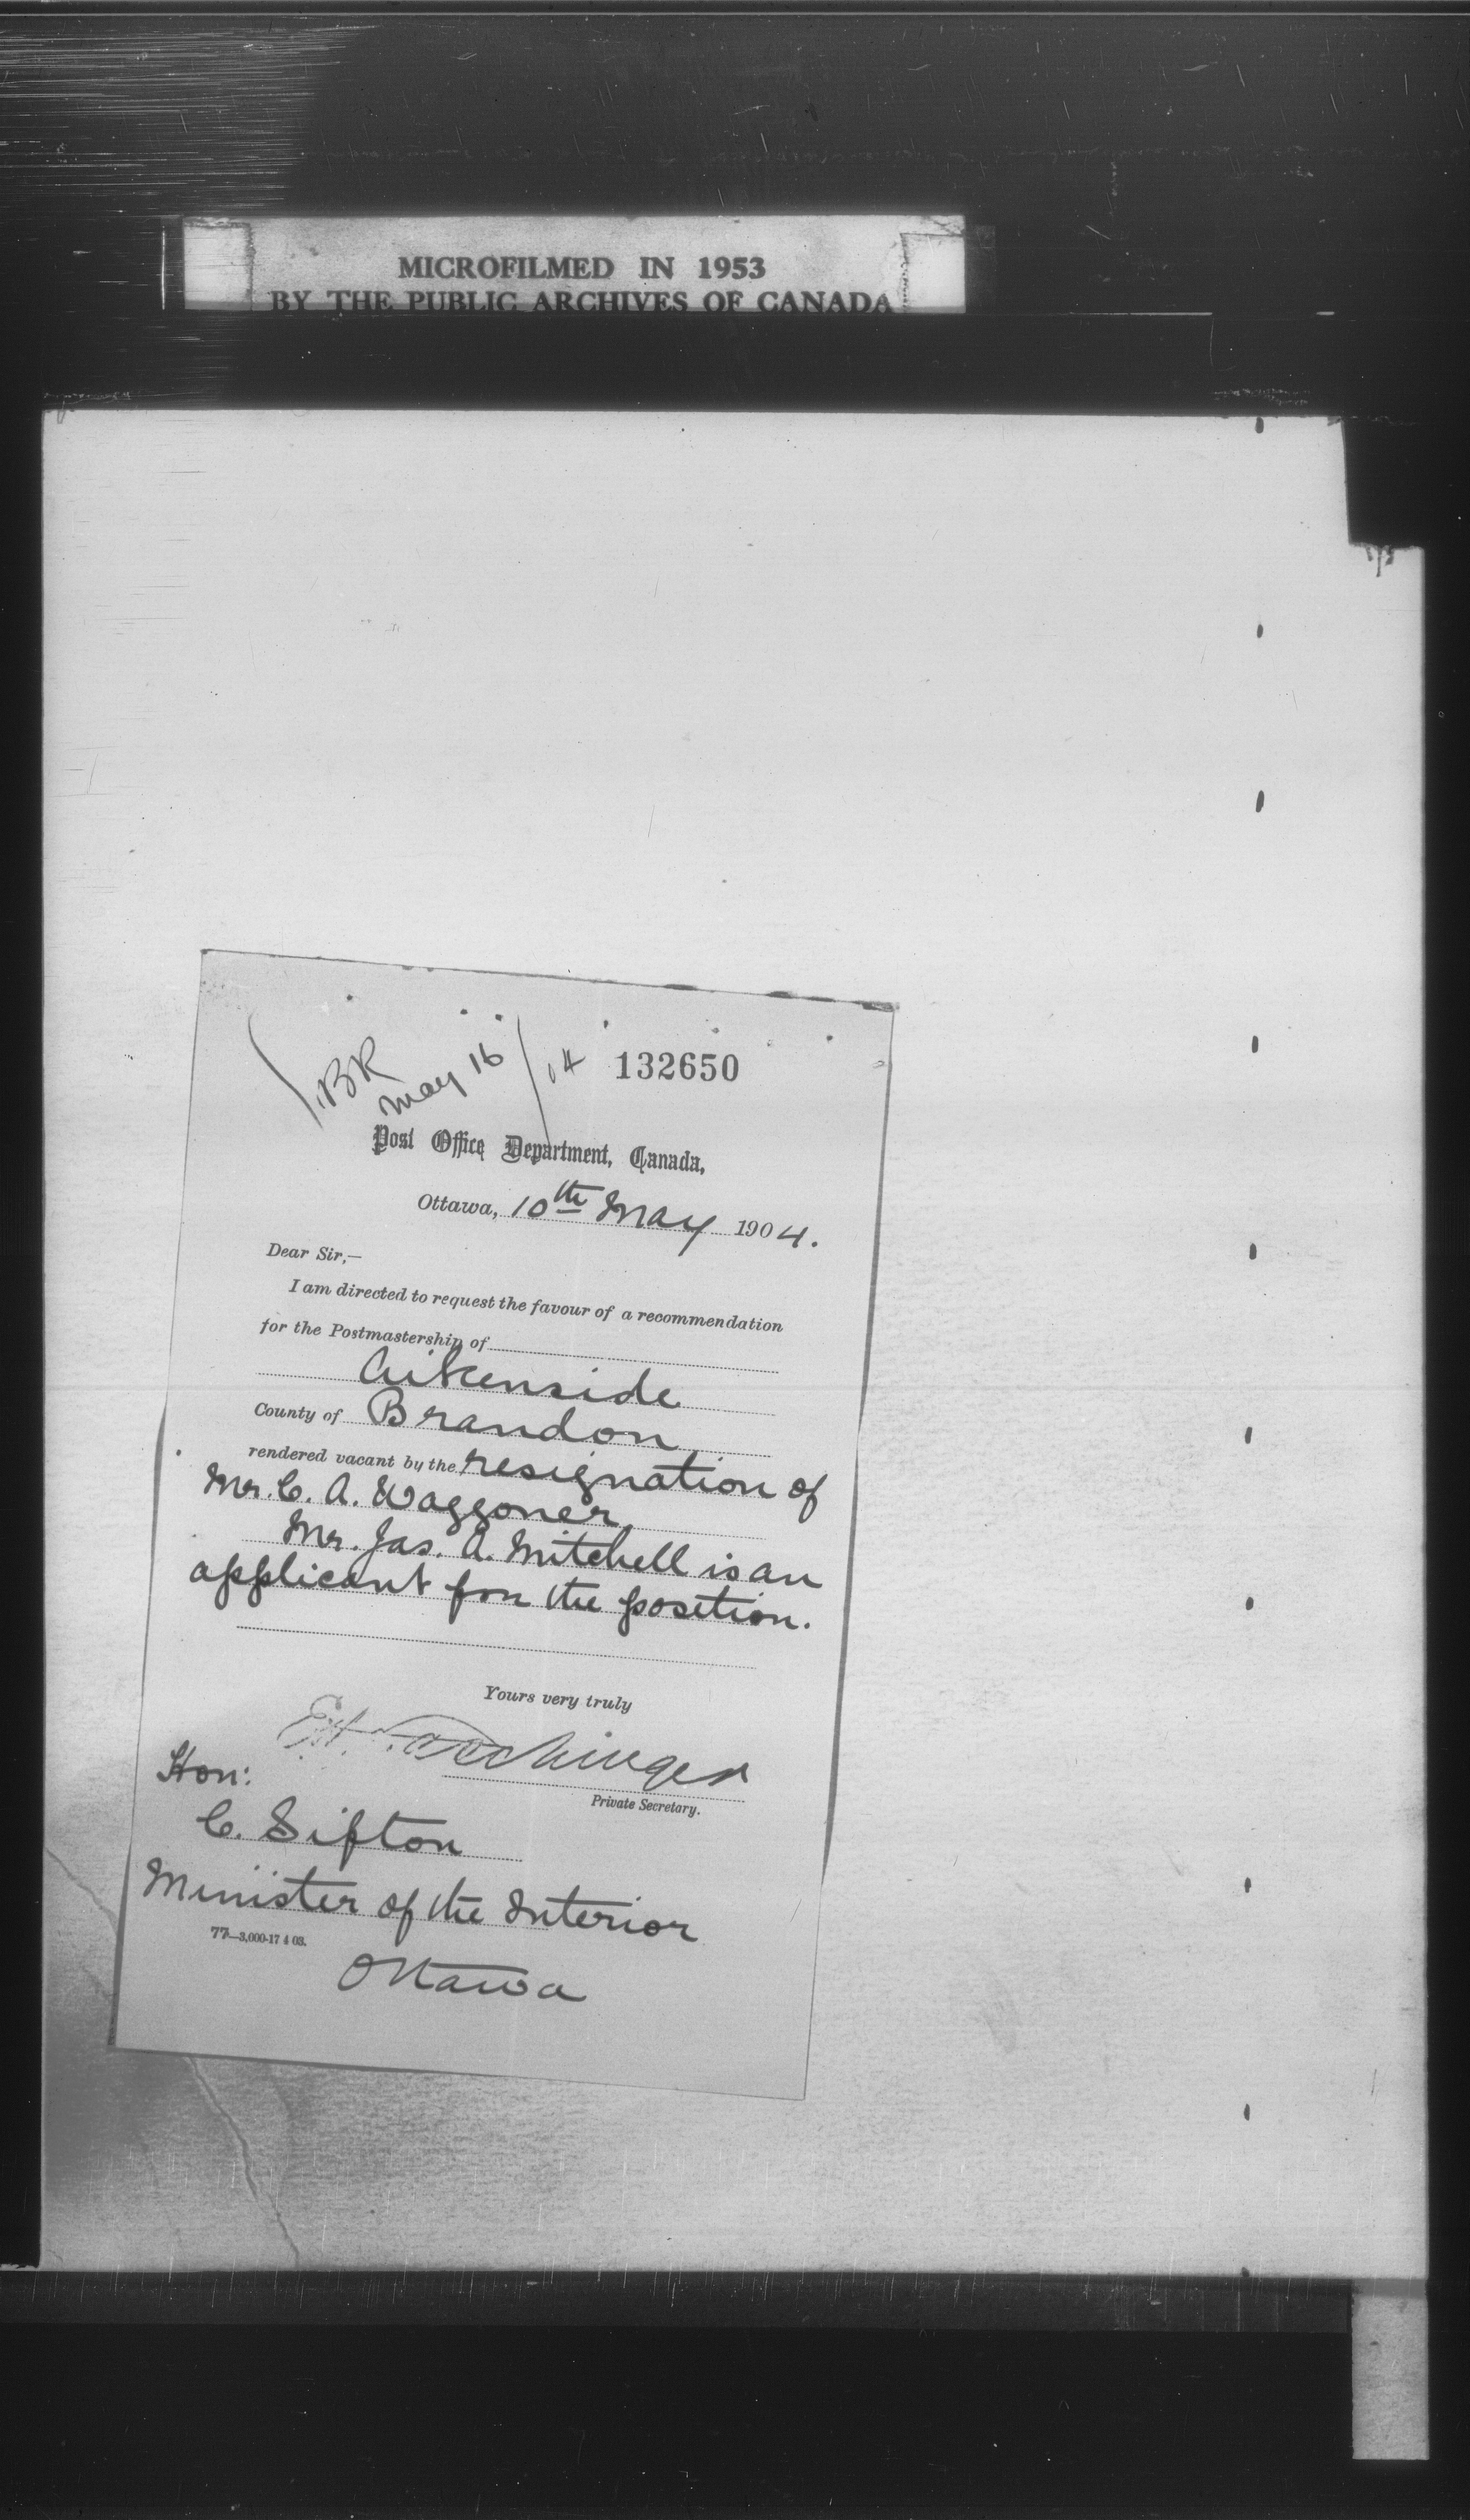 MICROFILMED IN 1953
BY THE PUBLIC ARCHIVES OF CANADA
BR
May 16/04
132650
Post Office Department, Canada,
Ottawa, 10th May 1904.
Dear Sir,—
I am directed to request the favour of a recommendation
for the Postmastership of
Aikenside
County of Brandon
rendered vacant by the resignation of
Mr. C. A. Waggoner.
Mr. Jas. A. Mitchell is an
applicant for the position.
Yours very truly
Private Secretary.
Hon:
C. Sifton
Minister of the Interior
77—3,000-17 4 03.
Ottawa